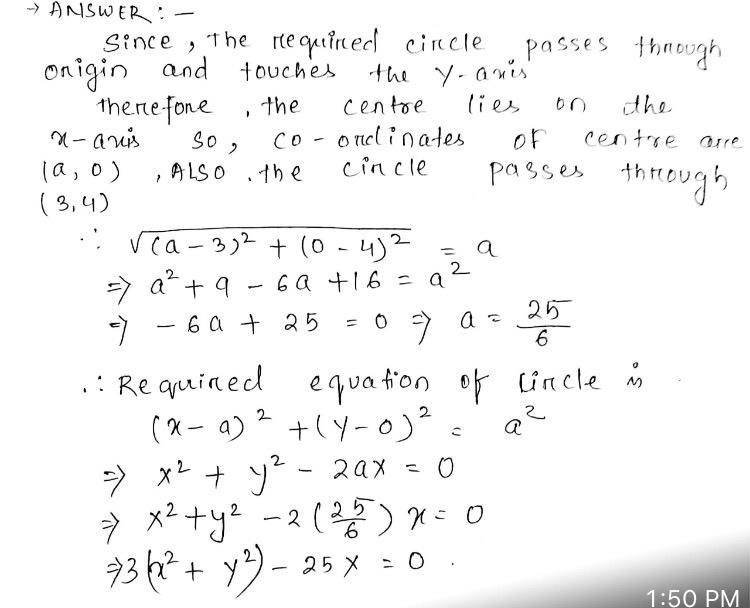 → ANSWER : —
Since, the required circle passes through
origin and touches the Y-axis
therefore, the centre lies on the
x-axis so, co-ordinates of centre are
(a, 0), ALSO. the circle passes through
(3,4)
∴ √((a-3)² + (0-4)²) = a
⇒ a² + 9 - 6a + 16 = a²
⇒ - 6a + 25 = 0 ⇒ a = 25/6
∴ Required equation of circle is
(x-a)² + (y-0)² = a²
⇒ x² + y² - 2ax = 0
⇒ x² + y² - 2(25/6)x = 0
⇒ 3(x² + y²) - 25x = 0.
1:50 PM